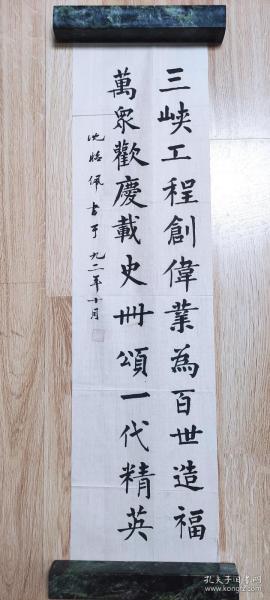 三峽工程創偉業為百世造福
萬眾歡慶載史冊頌一代精英
沈皓佩書于九二年十月
孔夫子旧书网